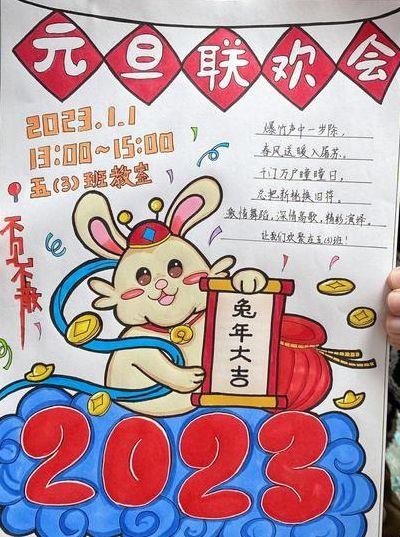 元旦联欢会
2023.1.1
13:00~15:00
五(3)班教室
不见不散
爆竹声中一岁除，
春风送暖入屠苏。
千门万户曈曈日，
总把新桃换旧符。
激情舞蹈，深情高歌，精彩演绎。
让我们欢聚在五(3)班！
兔年大吉
2023